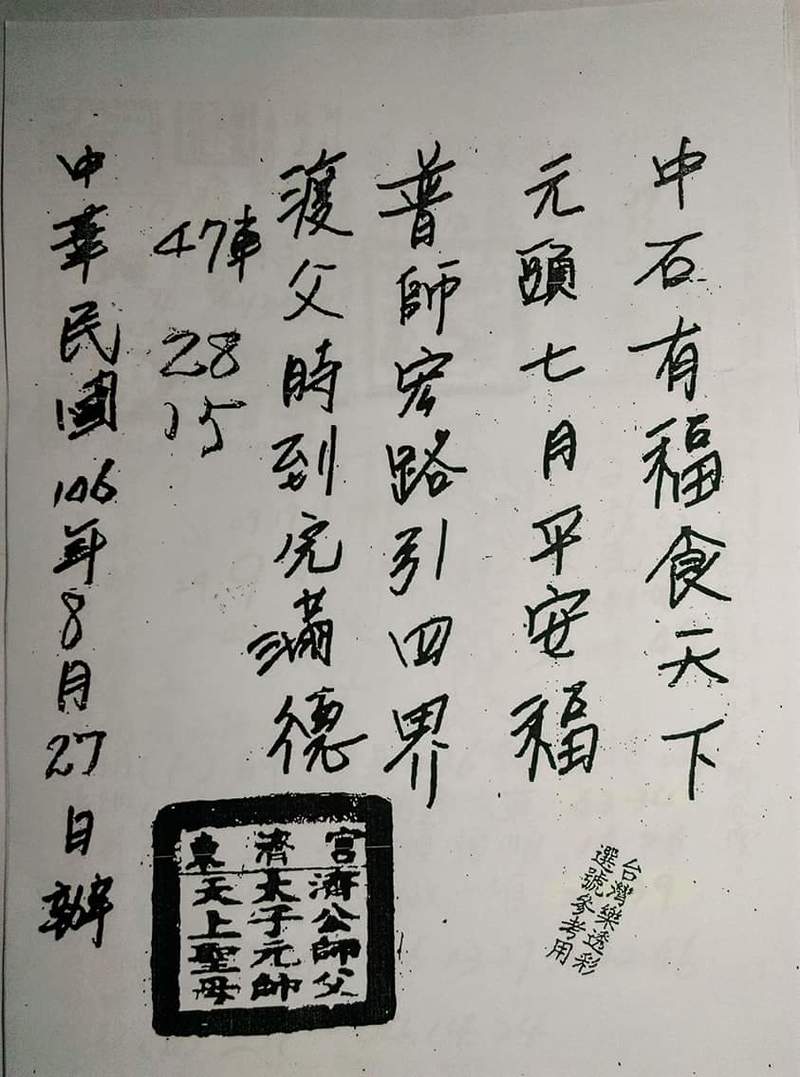 中石有福食天下
元頭七月平安福
普師宏路引四界
渡父時到完滿德
47車 28
15
中華民國106年8月27日辦
東濟宮
濟公師父
太子元帥
天上聖母
台灣樂透彩
選號參考用